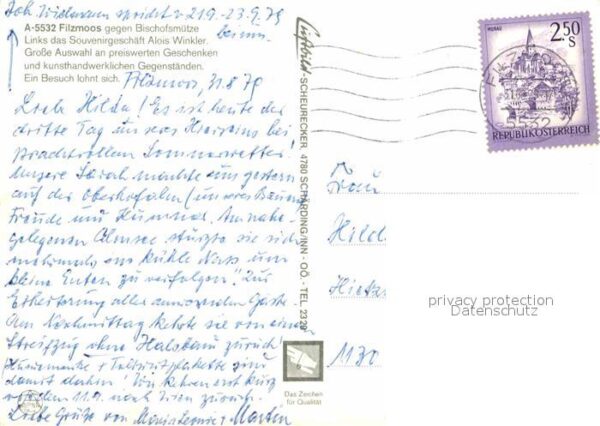 Joh. Widmann spricht v 21.9.-23.9.79
bei uns.
A-5532 Filzmoos gegen Bischofsmütze
Links das Souvenirgeschäft Alois Winkler.
Große Auswahl an preiswerten Geschenken
und kunsthandwerklichen Gegenständen.
Ein Besuch lohnt sich.
Filzmoos, 31.8.79
Liebe Hilda! Es ist heute der
dritte Tag unseres Hierseins bei
prachtvollem Sommerwetter!
Unsere Sarah machte uns gestern
auf der Oberhofalm
Freude und Kummer. Am nahe
gelegenen Almsee stürzte sie sich
mehrmals ins kühle Nass um
"kleine Enten zu verfolgen". Zur
Erheiterung aller anwesenden Gäste.
Am Nachmittag kehrte sie von einem
Streifzug ohne Halsband zurück
(Hundemarke + Tollwutplakette sind
damit dahin! Wir kehren erst kurz
vor dem 11.9. nach Wien zurück.
Liebe Grüße von
Luftbild - SCHEURECKER, 4780 SCHÄRDING/INN - OÖ. - TEL 2329
Das Zeichen
für Qualität
MURAU
2.50
S
REPUBLIK ÖSTERREICH
5532
Frau
Hild
Hietz
1130
privacy protection
Datenschutz